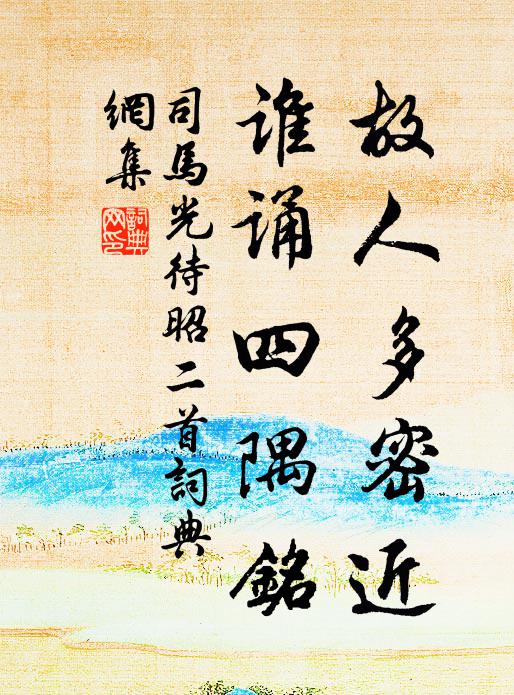 故人多密近
谁诵四隅銘
司馬光待昭二首詞典
網集
詞典
网印